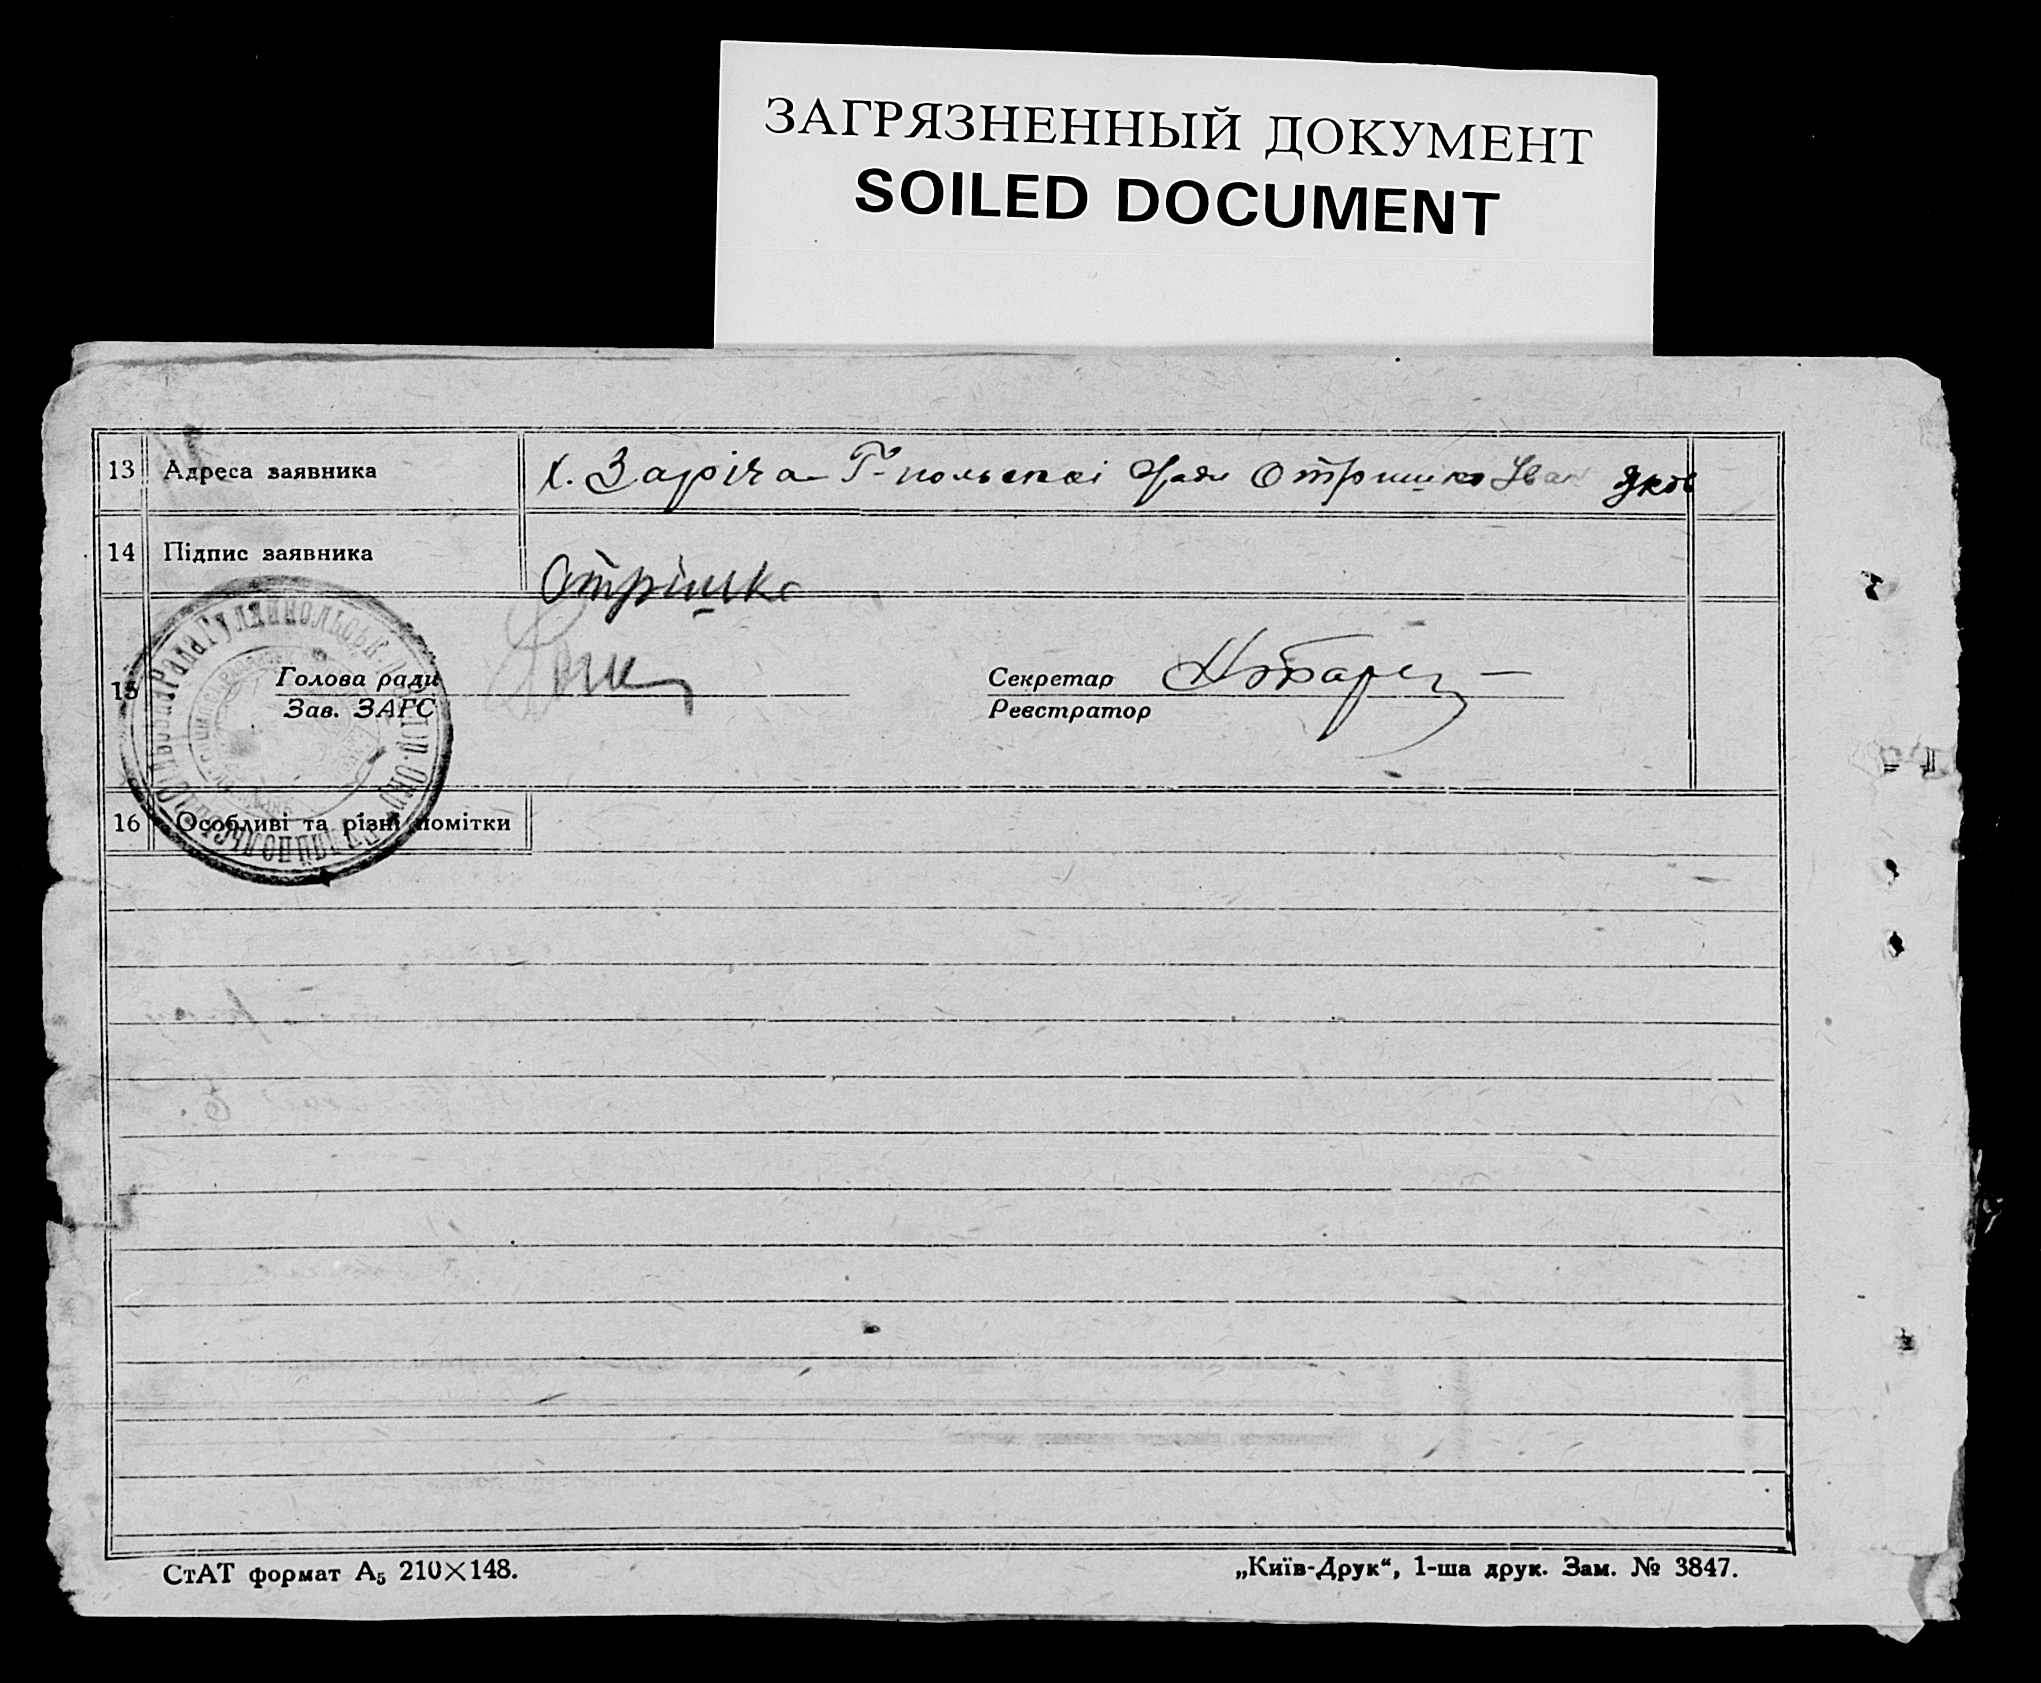 ЗАГРЯЗНЕННЫЙ ДОКУМЕНТ
SOILED DOCUMENT
13 Адреса заявника х. Заріча Г-польскі ради Отришко Іван Яков
14 Підпис заявника Отрішко
15 Голова ради Секретар
Зав. ЗАГС Реєстратор
16 Особливі та різні помітки
СтАТ формат А5 210×148.
„Київ-Друк“, 1-ша друк. Зам. № 3847.